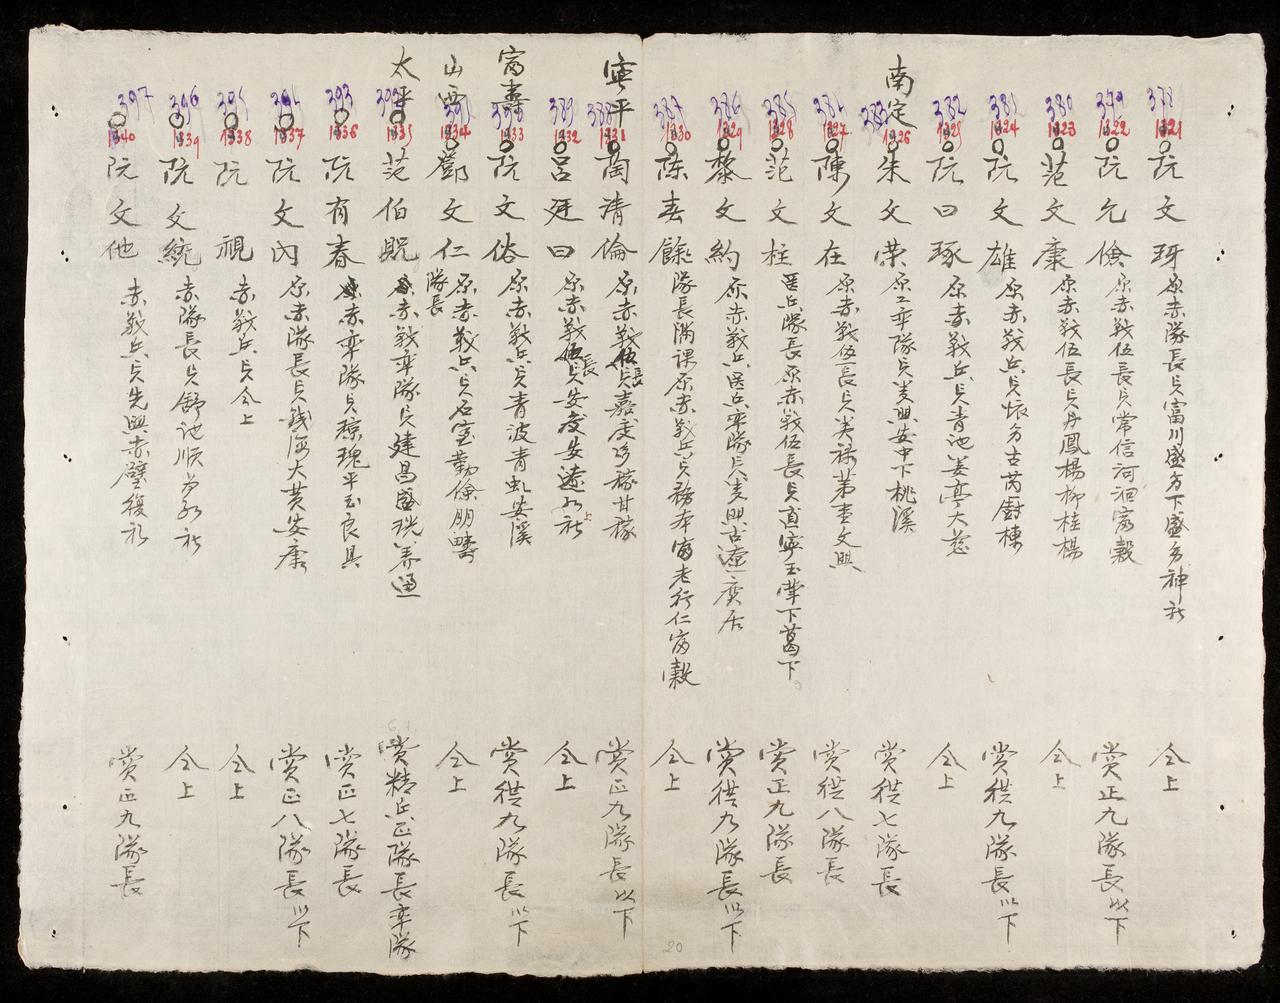 378 1321 阮文琈 原赤隊長兵富川盛多下盛多神社 仝上
379 1322 阮允儉 原赤戰伍長兵常信河洄富穀 賞正九隊長以下
380 1323 范文康 原赤戰伍長兵丹鳳楊柳桂楊 仝上
381 1324 阮文雄 原赤戰兵兵懷安古芮廚棟 賞從九隊長以下
382 1325 阮曰琢 原赤戰兵兵青池姜亭大慈 仝上
南定
383 1326 朱文荣 原工率隊兵美興安中下桃溪 賞從七隊長
384 1327 陳文在 原赤戰伍長兵美禄苐壹文興 賞從八隊長
385 1328 范文柱 匡兵隊長原赤戰伍長兵直寧玉葷下葛下 賞正九隊長
386 1329 黎文約 原赤戰兵匡兵率隊兵美興古遼廣居 賞從九隊長以下
387 1330 陈春餘 隊長滿課原赤戰兵兵務本富老行仁富穀 仝上
寧平
388 1331 陶清倫 原赤戰伍長兵嘉慶 甘稼 賞正九隊長以下
389 1332 吕廷曰 原赤戰伍長兵安慶安遼 社 仝上
富壽
390 1333 阮文俗 原赤戰兵兵青波青虬安溪 賞從九隊長以下
山西
391 1334 鄧文仁 隊長原赤戰兵兵石室勤儉朋疇 仝上
太平
392 1335 范伯貺 原赤戰率隊兵建昌盛 养通 賞精兵正隊長率隊
393 1336 阮有春 原赤率隊兵瓊瑰平玉良具 賞正七隊長
394 1337 阮文內 原赤隊長兵錢海大黄安康 賞正八隊長以下
395 1338 阮視 赤戰兵兵仝上 仝上
396 1339 阮文統 赤隊長兵舒池順為 社 仝上
397 1340 阮文他 赤戰兵兵先興赤壁復礼 賞正九隊長
20